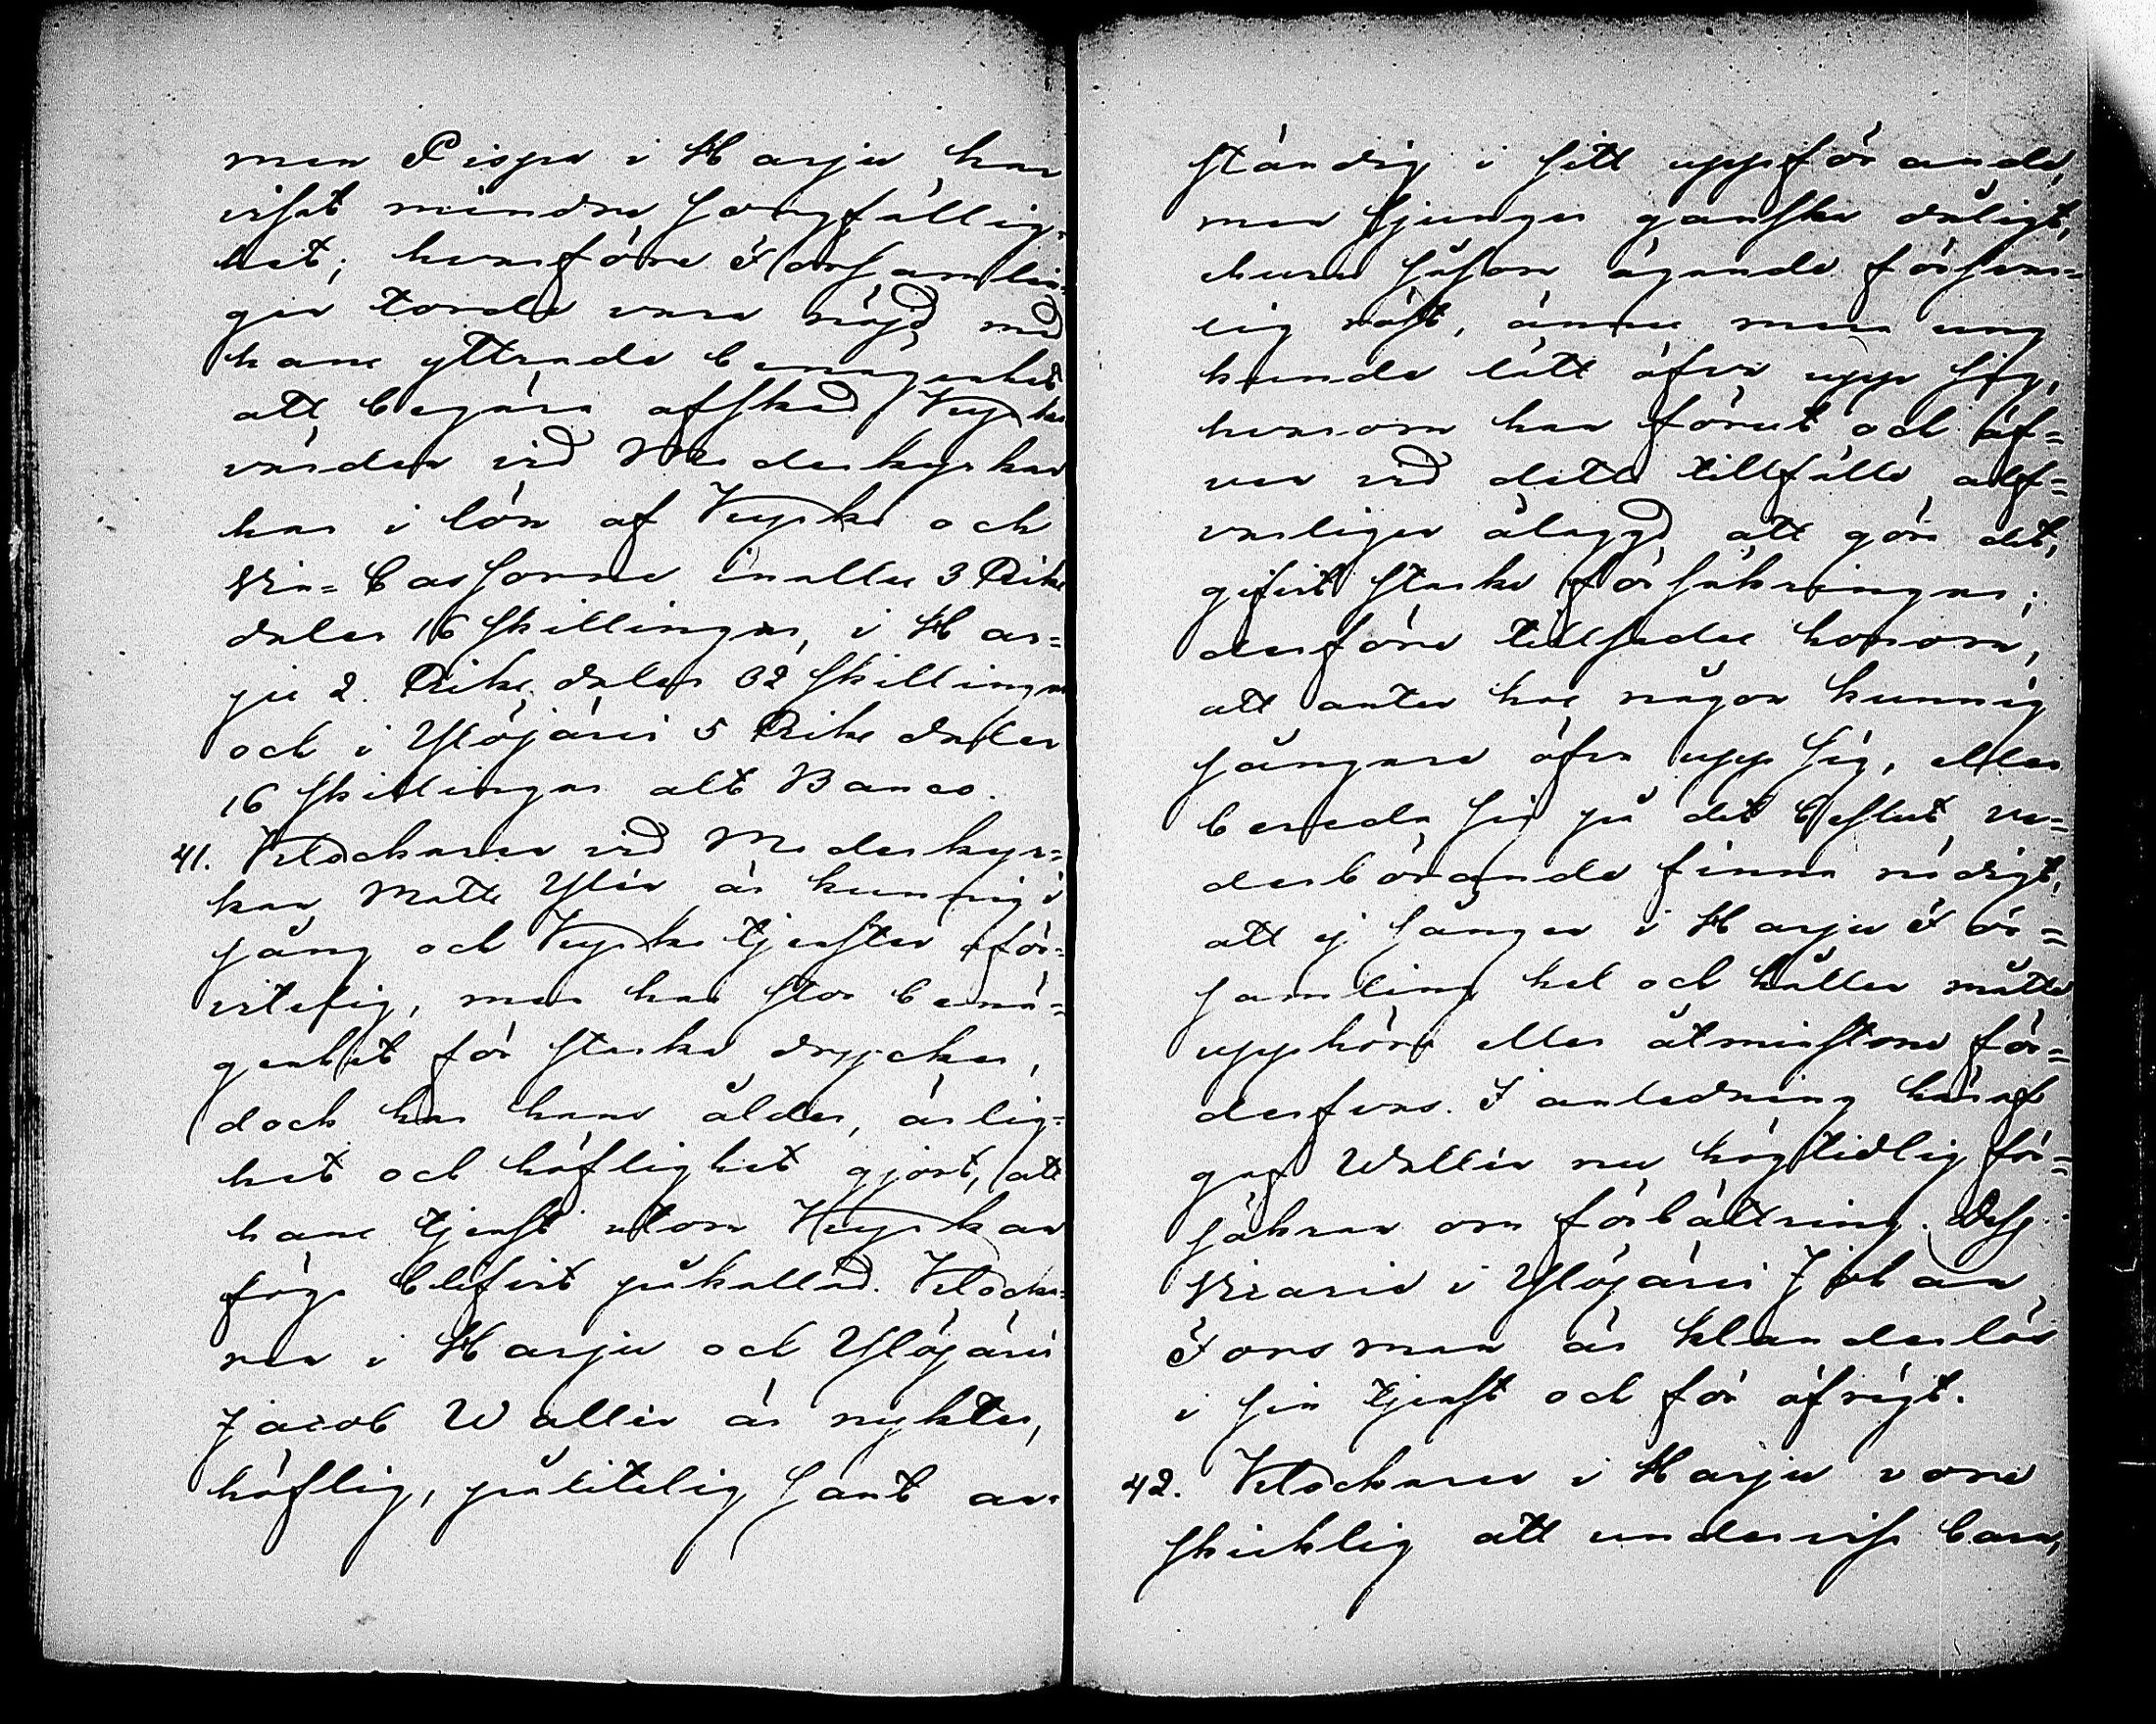 men Pispa i Harju har
visat mindre sorgfällig-
het; hvarföre Församlin-
gen torde vara nöjd med
hans yttrade benägenhet
att begära afsked. Kyrko
värden vid Moderkyrkan
har i lön af Kyrko och
Vin-Cassorne inalles 3 Riks
daler 16 skillingar, i Har-
ju 2. Riks daler 32 skillingar
och i Ylöjärvi 5 Riks daler
16 skillingar allt Banco.
41. Klockaren vid Moderkyr-
kan Matts Ylén är kunnig i
sång och Kyrko tjensten oför-
vitelig, men har stor benä-
genhet för starka drycker,
dock har hans ålder, ärlig-
het och höflighet gjort, att
hans tjenst utom Kyrkan
föga blifvit påkallad. Klocka-
ren i Harju och Ylöjärvi
Jacob Wallin är nykter,
höflig, pålitelig samt an-
ständig i sitt uppförande,
men sjunger ganska dåligt,
ehuru såsom ägande försvar-
lig röst, ännu men ung
kunde lätt öfva upp sig,
hvarom han förut och äf-
ven vid detta tillfälle alf-
varligen ålagd att göra det,
gifvit starka försäkringar;
derföre tillsades honom,
att antin hos någon kunnig
sångare öfva upp sig, eller
bereda sig på det beslut ve-
derbörande finna nödigt,
att ej sången i Harju För-
samling hel och hållen måtte
upphöra eller åtminstone för-
derfvas. I anledning häraf
gaf Wallin nu högtidlig för-
säkran om förbättring. Dess
Vicarie i Ylöjärvi Johan
Forsman är klanderlös
i sin tjenst och för öfrigt.
42. Klockaren i Harju vore
skicklig att undervisa barn,